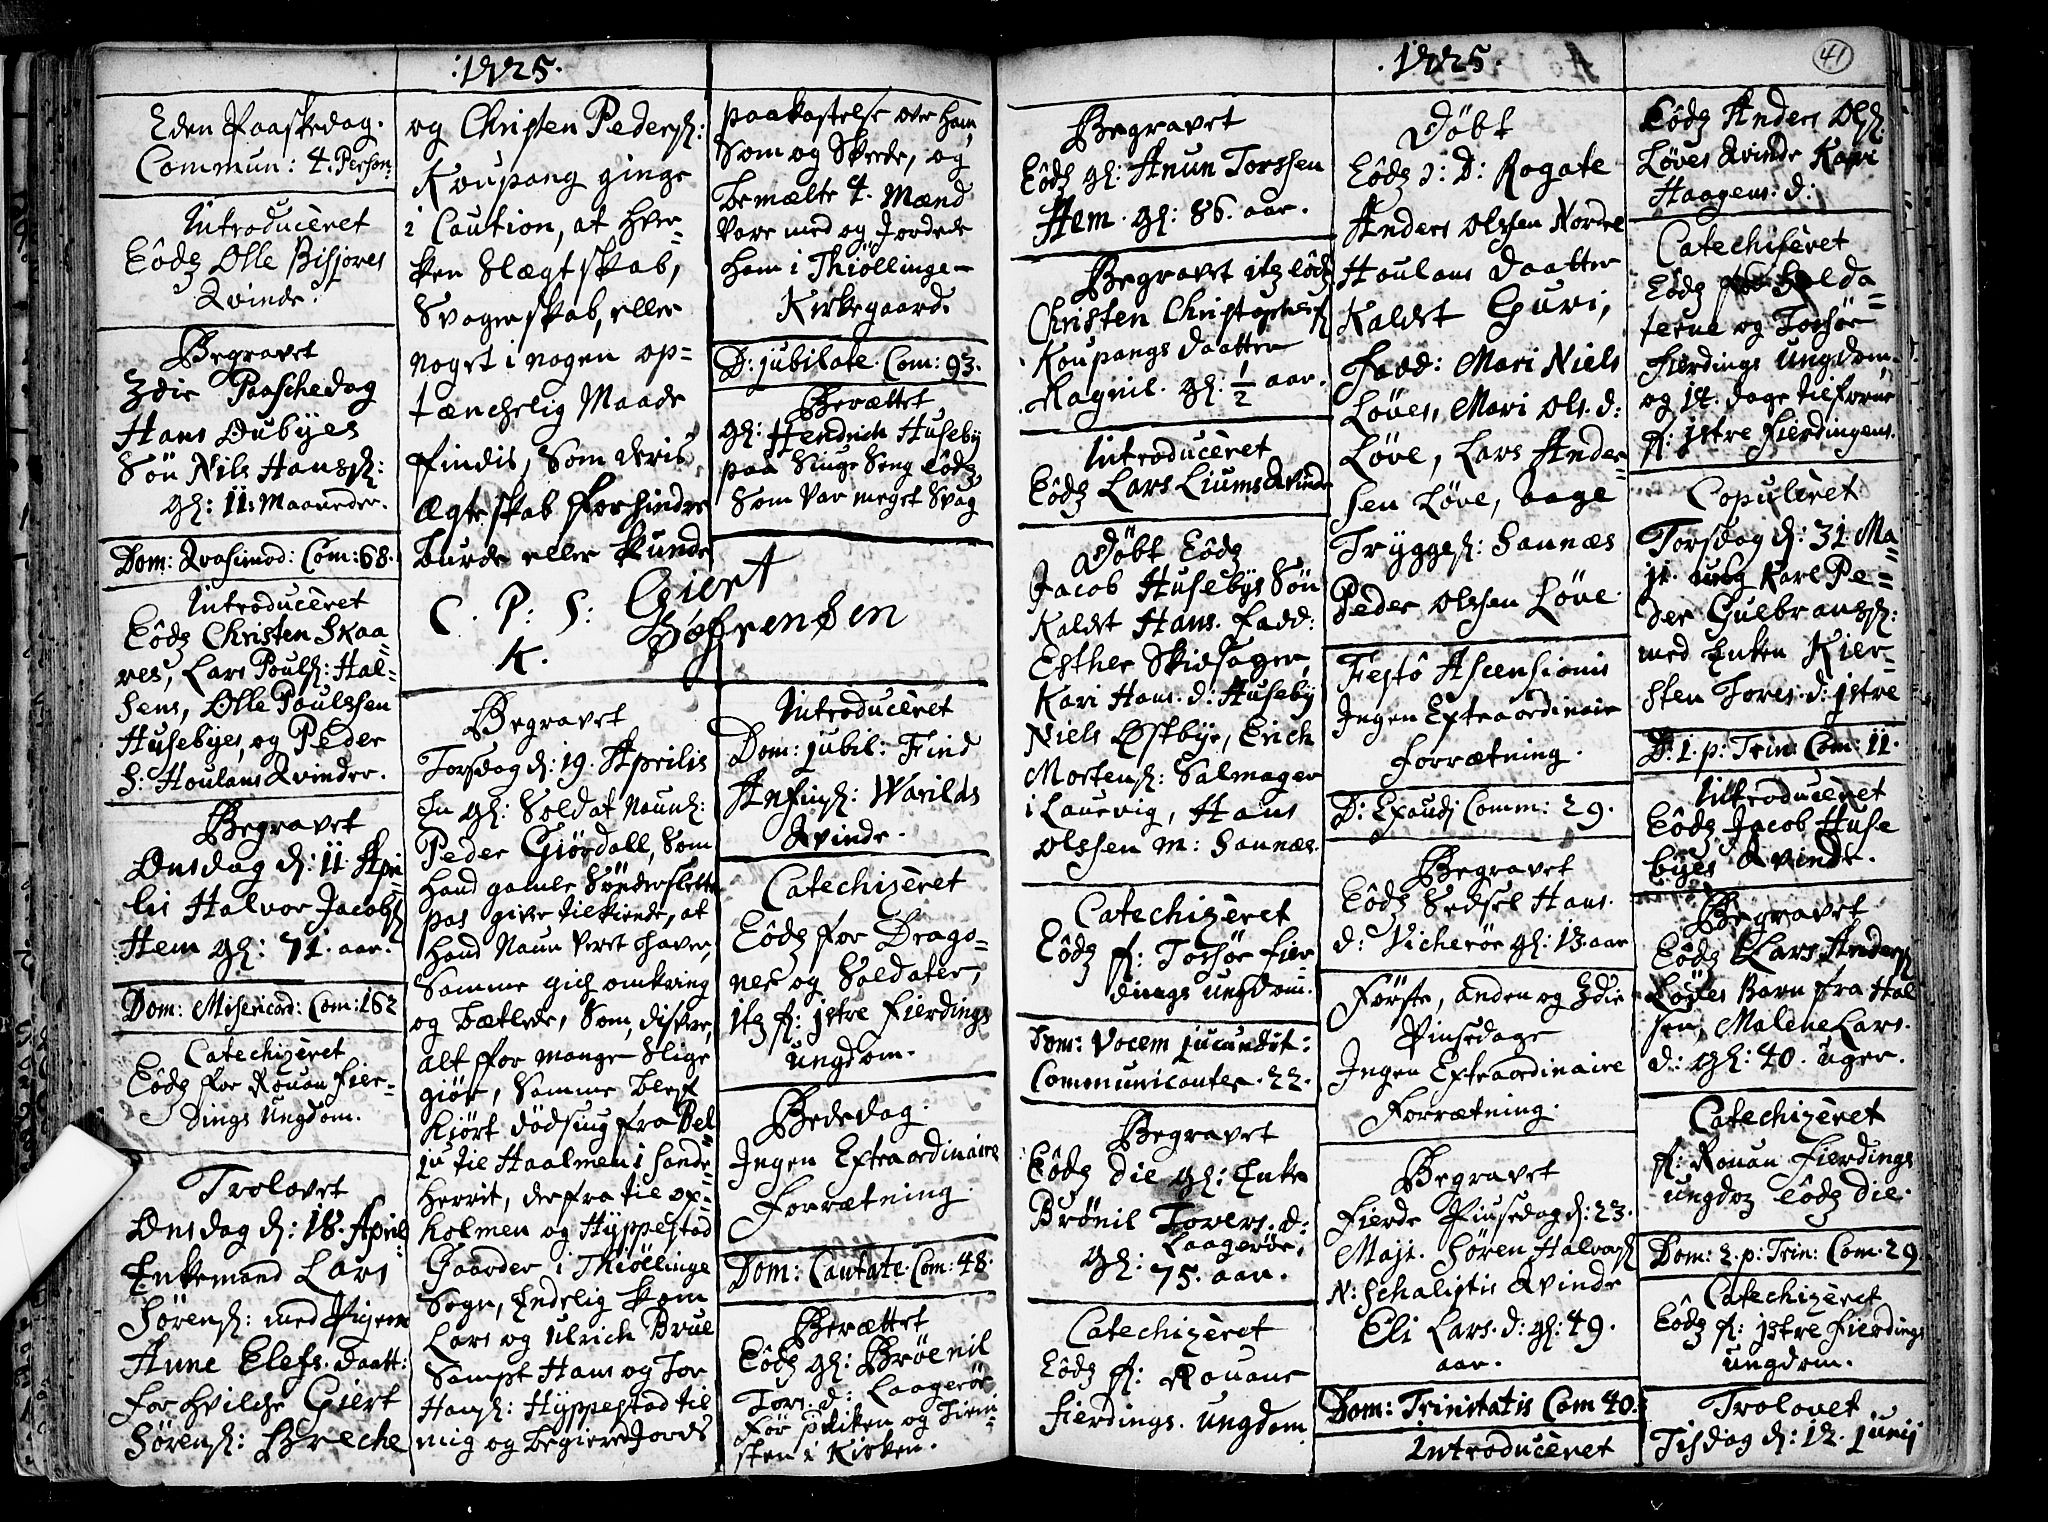 1725.
Eden Paaskedag.
Commun: 4. Person:
Introducêret
Eôdẽ Olle Bisjores
Qvinde.
Begravet
3die Paaschedag
Hans Dubyes
Sön Nils Hanss:
gl: 11. Maaneder.
Dom: Qvasimod: Com: 68.
Introducêret
Eôdẽ Christen Skaa=
res, Lars Pouls: Hal=
sens, Olle Poulssen
Husebyes, og Peder
S: Houlans Qvinder.
Begravet
Onsdag d: 11 Apri
lis Halvor Jacobs
Hem gl: 71. aar.
Dom: Misericord: Com: 162
Catechizeret
Eôdẽ for Rouan Fier=
dings Ungdom.
Trolovet
Onsdag d: 18. April
Enkemand Lars
Sörens: med Pigen
Anne Elefs. Daatt:
For hvilche Giert
Sörens: Breche
og Christen Peders:
Koupang ginge
i Caution, at hver=
ken Slægtskab,
Svagerskab, eller
noget i nogen op=
tænchelig Maade
findis, Som deris
Ægteskab forhindre
burde eller kunde
C. P: S: Giert
K. Söfrensen
Begravet
Torsdag d: 19. Aprilis
En gl: Soldat Naunl:
Peder Giordall, Som
hand gamle Sönderslette
pas give tilkiende, at
hand Naun veret hafver,
Samme gich omkring
og betlede, Som, disver,
alt for mange Slige
giör, Samme blef
kiört dödsiug fra Bel=
ju til Haalmen i Sande
herrit, derfra til Ox=
holmen og Hyppestad
Gaarder i Thiöllinge
Sogn, Endelig kom
Lars og Ulrich Brue
Sampt Hans og Tor
Hans: Hyppestad til
mig og begierte Jords
paakastelse over ham,
Som og Skeede, og
bemælte 4. Mænd
Vare med og Jordede
ham i Thiöllinge=
Kirkegaard.
D: jubilate. Com: 93.
Berættet
gl: Hendrich Huseby
paa Siuge Seng Eôdẽ
Som var meget Svag
Introducêret
Dom: jubil: Find
Anfins: Warilds
Qvinde.
Catechizêret
Eôdẽ for Drago=
ner og Soldater,
itẽ f: ystre Fierdings
Ungdom.
Bededag.
Ingen Extraordinaire
Forrætning.
Dom: Cantate. Com: 48.
Berættet
Eôdẽ gl: Bröenil
Tors. d: Laageröe
För prediken og Tieni=
sten i Kirken.
1725.
41
Begravet
Eôdẽ gl: Anun Torssen
Hem. gl: 86. aar.
Begravet itẽ Eôdẽ
Christen Christophers
Koupangs Daatter
Magnil. gl: 1/2 aar.
Introducêret
Eôdẽ Lars Liums Qvinde
Döbt Eôdẽ
Jacob Husebys Sön
Kaldet Hans. Fadd:
Esther Skidsager,
Kari Hans. d: Huseby
Niels Østbye, Erich
Mortens: Salmager
i Laurvig, Hans
Olssen m: Sannæs.
Catechizeret
Eôdẽ f: Torsöe Fier=
dings Ungdom.
Dom: Vocem jucundit:
Communicanter. 22.
Begravet
Eôdẽ die gl: Enke
Brönil Torers. d:
Laageröe,
gl: 75. aar.
Catechizêret
Eôdẽ f: Rouans
Fierdings. Ungdom
Döbt
Eôdẽ ɔ: D: Rogate
Anders Olssen Nordre
Houlans Daatter
Kaldet Guri,
Fadd: Mari Niels
Löves, Mari Ols. d:
Löve, Lars Ander=
sen Löve, Aage
Trygges: Sannæs
Peder Olssen Löve.
Festô Ascensionis
Ingen Extraordinair
Forrætning.
D: Exaudj Comm: 29.
Begravet
Eôdẽ Sedsel Hans.
d: Vicheröe gl: 13 aar
Förste, anden og 3die
Pinsedage
Ingen Extraordinaire
Forrætning.
Begravet
Fierde Pinsedag d: 23.
Maji. Sören Halvors
N: Schalistis Qvinde
Eli Lars. d: gl: 49.
aar.
Dom: Trinitatis Com 40.
Introducêret
Eôdẽ Anders Ols.
Löves Qvinde Kari
Haagens. d:
Catechisêret
Eôdẽ Solda=
terne og Torsöe
Fierdings Ungdom,
og 14. dage tilforne
f: ystre Fierdingens.
Copulêret
Torsdag d: 31. Ma=
ji. ung karl Pe=
der Gulbranss:
med Enken Kier=
sten Tores. d: ystre
D: 1. p: Trin: Com: 11.
Introducêret
Eôdẽ Jacob Huse
byes Qvinde.
Begravet
Eôdẽ Lars Anders
Löves Barn fra Hal
sen, Malene Lars.
d: gl: 40. uger.
Catechizêret
f: Rouan Fierdings
Ungdoz Eôdẽ die.
Dom: 2. p: Trin: Com. 29.
Catechizêret
Eôdẽ f: ystre Fierdings
Ungdom.
Trolovet
Tisdag d: 12. Junij